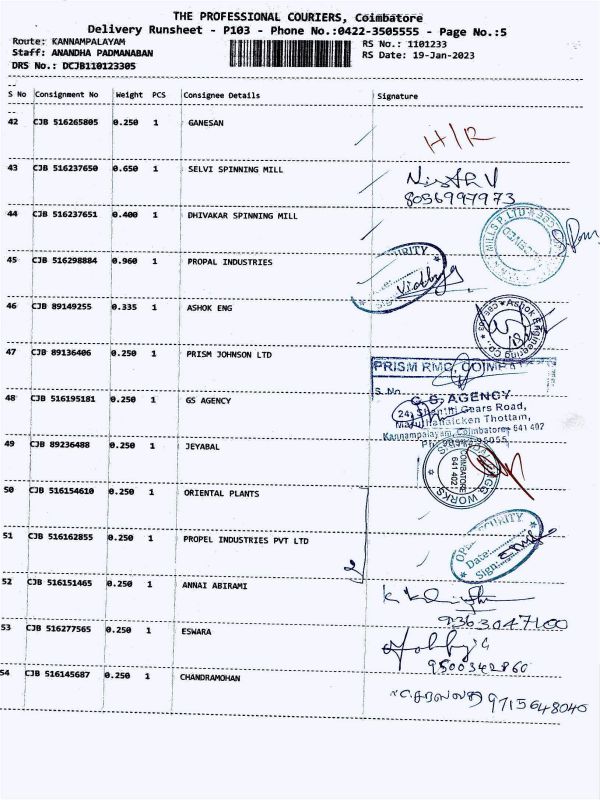 THE PROFESSIONAL COURIERS, Coimbatore
Delivery Runsheet - P103 - Phone No.:0422-3505555 - Page No.:5
Route: KANNAMPALAYAM RS No.: 1101233
Staff: ANANDHA PADMANABAN RS Date: 19-Jan-2023
DRS No.: DCJB110123305
S No Consignment No Weight PCS Consignee Details Signature
42 CJB 516265805 0.250 1 GANESAN H/R
43 CJB 516237650 0.650 1 SELVI SPINNING MILL
8056997973
44 CJB 516237651 0.400 1 DHIVAKAR SPINNING MILL
45 CJB 516298884 0.960 1 PROPAL INDUSTRIES
46 CJB 89149255 0.335 1 ASHOK ENG Ashok Engineering Co.
47 CJB 89136406 0.250 1 PRISM JOHNSON LTD
PRISM RMC, COIMBAT
S. No.
48 CJB 516195181 0.250 1 GS AGENCY
G. S. AGENCY
24, Shanthi Gears Road,
Thottam,
Kannampalayam, Coimbatore 641 402
49 CJB 89236488 0.250 1 JEYABAL
COIMBATORE
641 402
WORKS
50 CJB 516154610 0.250 1 ORIENTAL PLANTS
51 CJB 516162855 0.250 1 PROPEL INDUSTRIES PVT LTD
SECURITY
Date:
Sign:
52 CJB 516151465 0.250 1 ANNAI ABIRAMI
9363047100
53 CJB 516277565 0.250 1 ESWARA
9500342860
54 CJB 516145687 0.250 1 CHANDRAMOHAN 9715648046